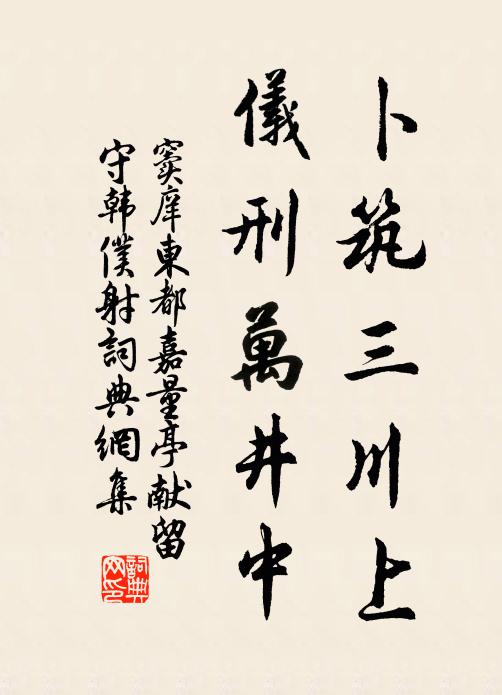 卜筑三川上
儀刑萬井中
窦庠東都嘉量亭献留
守韩僕射詞典網集
詞典网印